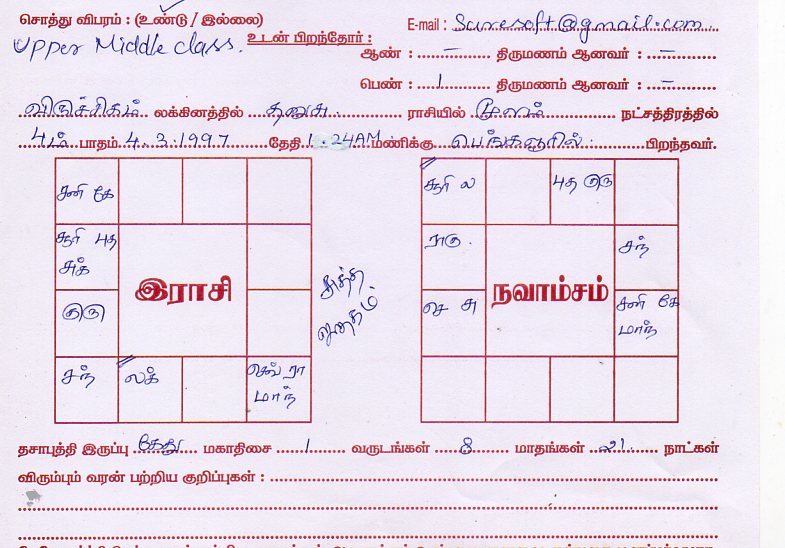 சொத்து விபரம் : (உண்டு / இல்லை)
Upper Middle class.
E-mail : Suresoft@gmail.com
உடன் பிறந்தோர் :
ஆண் : – திருமணம் ஆனவர் : –
பெண் : 1 திருமணம் ஆனவர் : –
விருச்சிகம் லக்கினத்தில் தனுசு ராசியில் மூலம் நட்சத்திரத்தில்
4ம் பாதம் 4.3.1997 தேதி 1.24AM மணிக்கு பெங்களூரில் பிறந்தவர்.
சனி கே
சூரி புத சுக்
குரு
சந்
லக்
செவ் ரா மாந்
இராசி
சுத்த ஜாதகம்
சூரி ல
புத குரு
ராகு
சந்
செ சு
சனி கே மாந்
நவாம்சம்
தசாபுத்தி இருப்பு கேது மகாதிசை 1 வருடங்கள் 8 மாதங்கள் 21 நாட்கள்
விரும்பும் வரன் பற்றிய குறிப்புகள் :